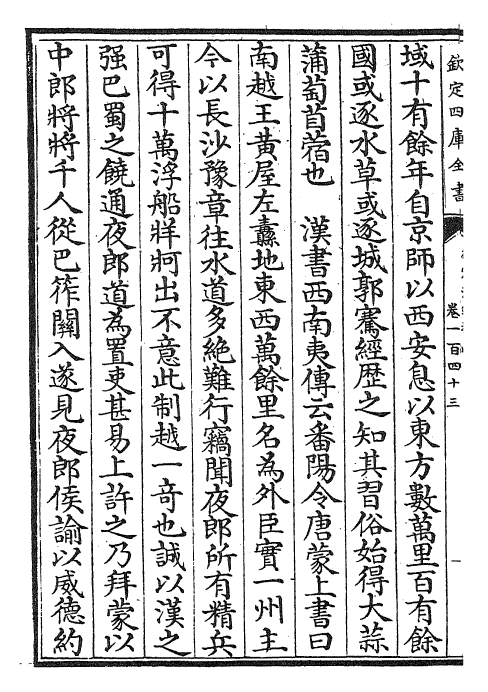 欽定四庫全書
卷一百四十三
域十有餘年自京師以西安息以東方數萬里百有餘
國或逐水草或逐城郭騫經歴之知其習俗始得大蒜
蒲萄苜蓿也　漢書西南夷傳云番陽令唐蒙上書曰
南越王黄屋左纛地東西萬餘里名為外臣實一州主
今以長沙豫章往水道多絶難行竊聞夜郎所有精兵
可得十萬浮船牂牁出不意此制越一竒也誠以漢之
强巴蜀之饒通夜郎道為置吏甚易上許之乃拜蒙以
中郎將將千人從巴筰關入遂見夜郎侯諭以威德約